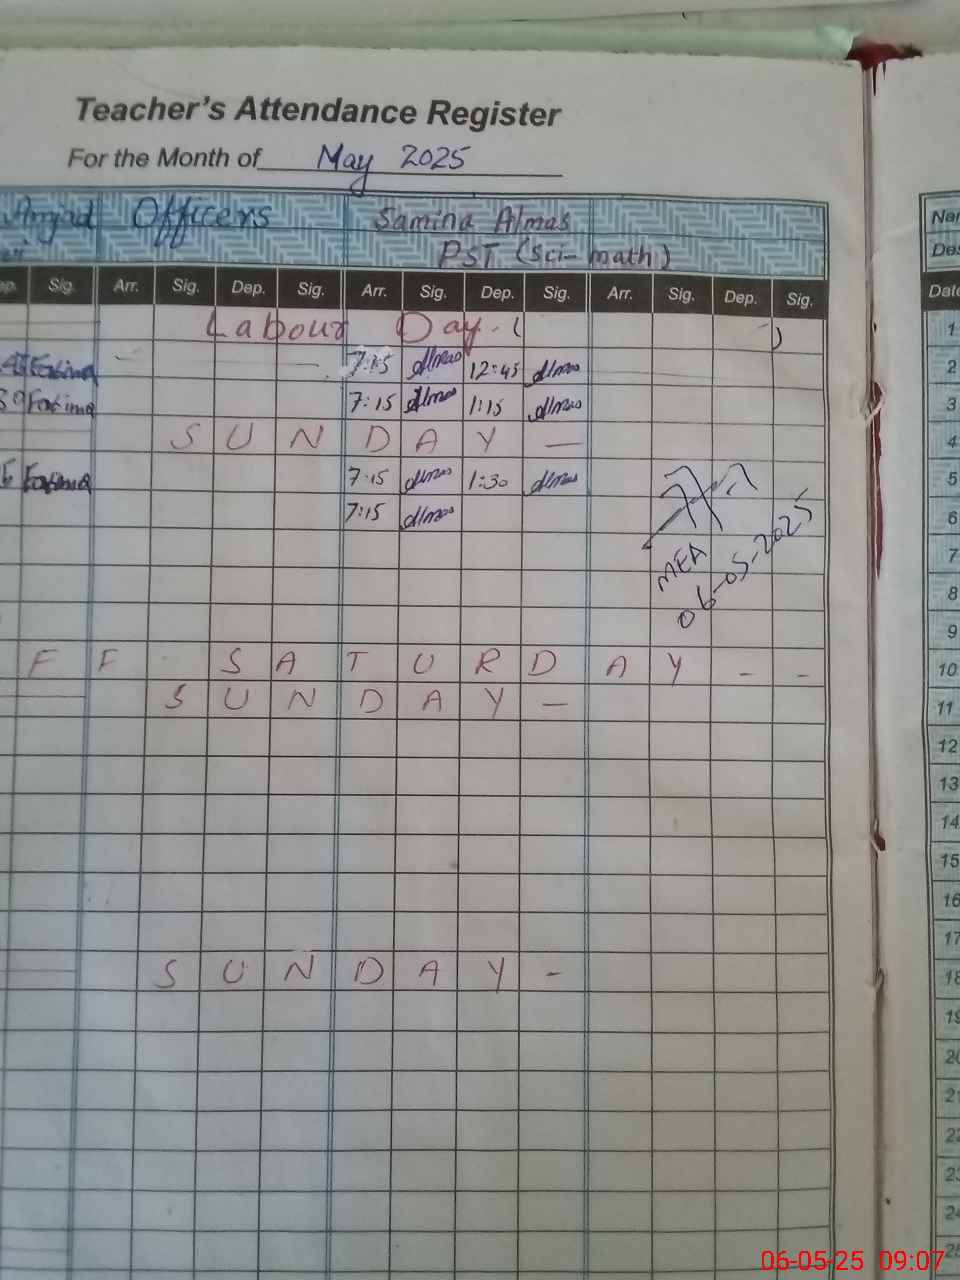 Teacher's Attendance Register
For the Month of May 2025
Amjad Officers Samina Almas
PST (Sci-math)
Sig. Arr. Sig. Dep. Sig. Arr. Sig. Dep. Sig. Arr. Sig. Dep. Sig. Date
Labour Day. ( ) 1
Fatima 7:15 Almas 12:45 Almas 2
Fatima 7:15 Almas 1:15 Almas 3
S U N D A Y — 4
Fatima 7:15 Almas 1:30 Almas 5
7:15 Almas 6
MEA
06-05-2025
7
8
9
F F S A T U R D A Y - - 10
S U N D A Y — 11
12
13
14
15
16
17
S U N D A Y - 18
19
20
21
22
23
24
25
06-05-25 09:07